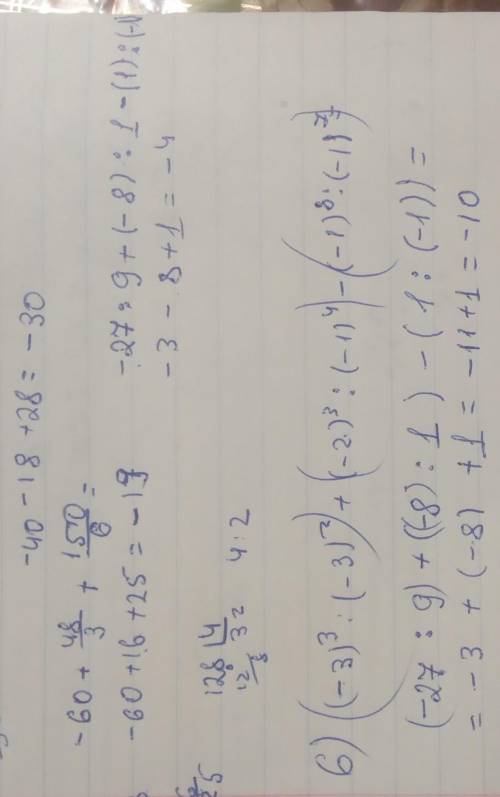 -40-18+28=-30
-60+48/3+150/6=
-60+16+25=-19
-27:9+(-8):1-(1):(-1
-3-8+1=-4
128 4
12 32
8
4:2
25
б) ((-3)³:(-3)²)+((-2)³:(-1)⁴)-((-1)⁸:(-1)⁷)
(-27:9)+((-8):1)-(1:(-1))=
=-3+(-8)+1=-11+1=-10